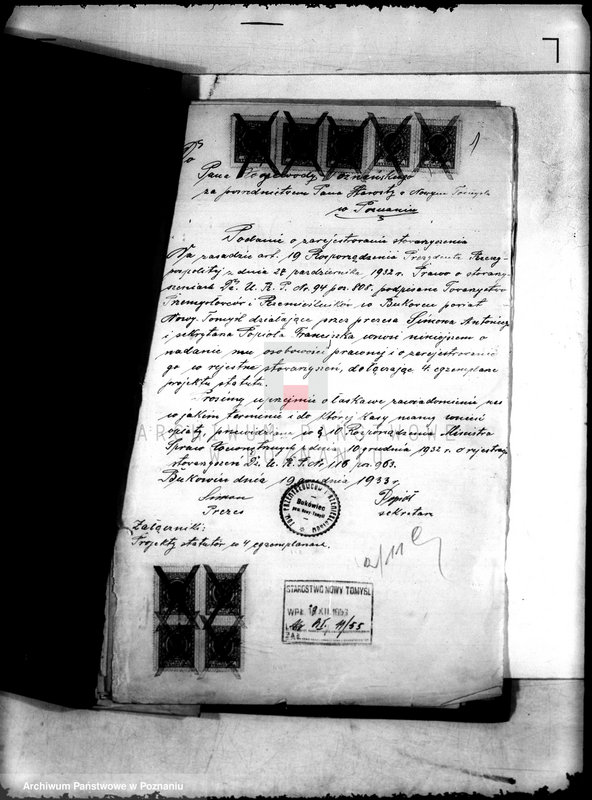 1
Do
Pana Wojewody Poznańskiego
za pośrednictwem Pana Starosty w Nowym Tomyślu
w Poznaniu
Podanie o zarejestrowanie stowarzyszenia
Na zasadzie art. 19 Rozporządzenia Prezydenta Rzeczy-
pospolitej z dnia 27 października 1932 r. Prawo o stowarzy-
szeniach Dz. U. R. P. Nr. 94 poz. 808. podpisane Towarzystwo
Przemysłowców i Rzemieślników w Bukowcu powiat
Nowy-Tomyśl działające przez prezesa Simona Antoniego
i sekretarza Popioła Franciszka wnosi niniejszem o
nadanie mu osobowości prawnej i o zarejestrowanie
go w rejestrze stowarzyszeń, dołączając 4. egzemplarze
projektu statutu.
Prosimy uprzejmie o łaskawe zawiadomienie nas
w jakim terminie i do której kasy mamy wnieść
opłaty przewidziane w § 10 Rozporządzenia Ministra
Spraw Wewnętrznych z dnia 10 grudnia 1932 r. o rejestrze
stowarzyszeń Dz. U. R. P. Nr 116 poz. 963.
Bukowiec dnia 19 grudnia 1933 r.
Simon
Prezes
TOW. PRZEMYSŁOWCÓW I RZEMIEŚLNIKÓW
Bukówiec
pow. Nowy Tomyśl
Popioł
sekretarz
Załączniki:
Projekty statutów w 4 egzemplarze.
STAROSTWO NOWY TOMYŚL
WPŁ. 19 XII. 1933
ZAŁ.
ARCHIWUM PAŃSTWOWE
W POZNANIU
Archiwum Państwowe w Poznaniu